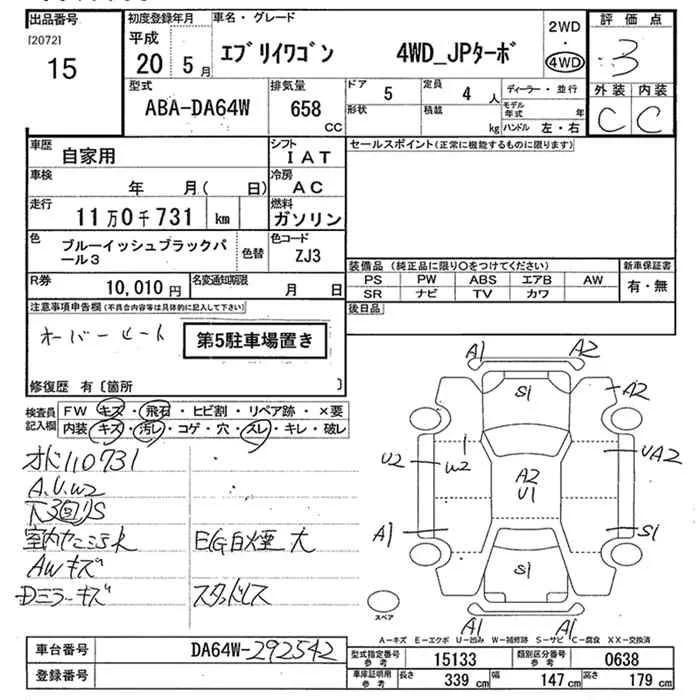 出品番号 初度登録年月 車名・グレード 評価点
[2072]
15
平成
20 5 月
エブリイワゴン 4WD_JPターボ
2WD
・
4WD
3
型式 排気量 ドア 5 定員 4 人 ディーラー・並行 外装 内装
ABA-DA64W 658 CC
形状 積載 kg モデル年式 年
ハンドル 左・右
C C
車歴 自家用 シフト IAT セールスポイント(正常に機能するものに限ります)
車検 年 月( 日) 冷房 AC
走行 11万0千731 km 燃料 ガソリン
色 ブルーイッシュブラックパール3 色替 色コード ZJ3
R券 10,010円 名変通知期限 月 日
装備品(純正品に限り○をつけてください) 新車保証書
PS PW ABS エアB AW 有・無
SR ナビ TV カワ
注意事項申告欄(不具合内容等は具体的に記入して下さい) 後日品
オーバーヒート 第5駐車場置き
修復歴 有〔箇所 〕
検査員記入欄 FW キズ・飛石・ヒビ割・リペア跡・×要
内装 キズ・汚レ・コゲ・穴・スレ・キレ・破レ
オド110731
A.U.W2
下3回S
EG白煙大
AWキズ
Dミラーキズ スタッドレス
A1 A2
S1 A2
U2 W2 A2 U1 UA2
A1 S1 S1
A1 A1
スペア
A－キズ E－エクボ U－凹み W－補修跡 S－サビ C－腐食 XX－交換済
車台番号 DA64W-292542
登録番号
型式指定番号参考 15133 類別区分番号参考 0638
車庫証明用参考 長さ 339 cm 幅 147 cm 高さ 179 cm